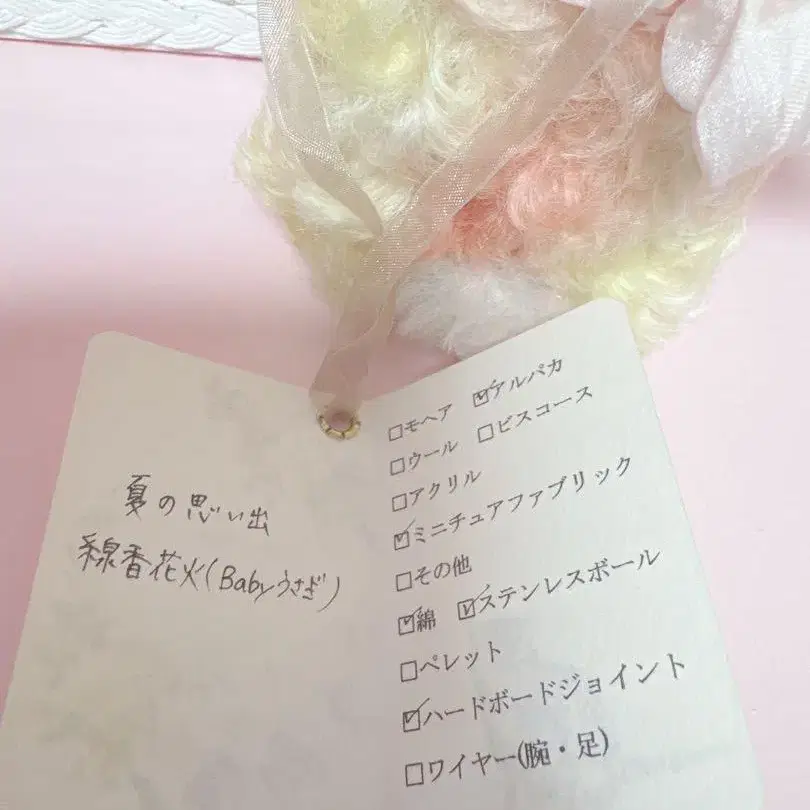 夏の思い出
線香花火(Babyうさぎ)
□モヘア ☑アルパカ
□ウール □ビスコース
□アクリル
☑ミニチュアファブリック
□その他
☑綿 ☑ステンレスボール
□ペレット
☑ハードボードジョイント
□ワイヤー(腕・足)